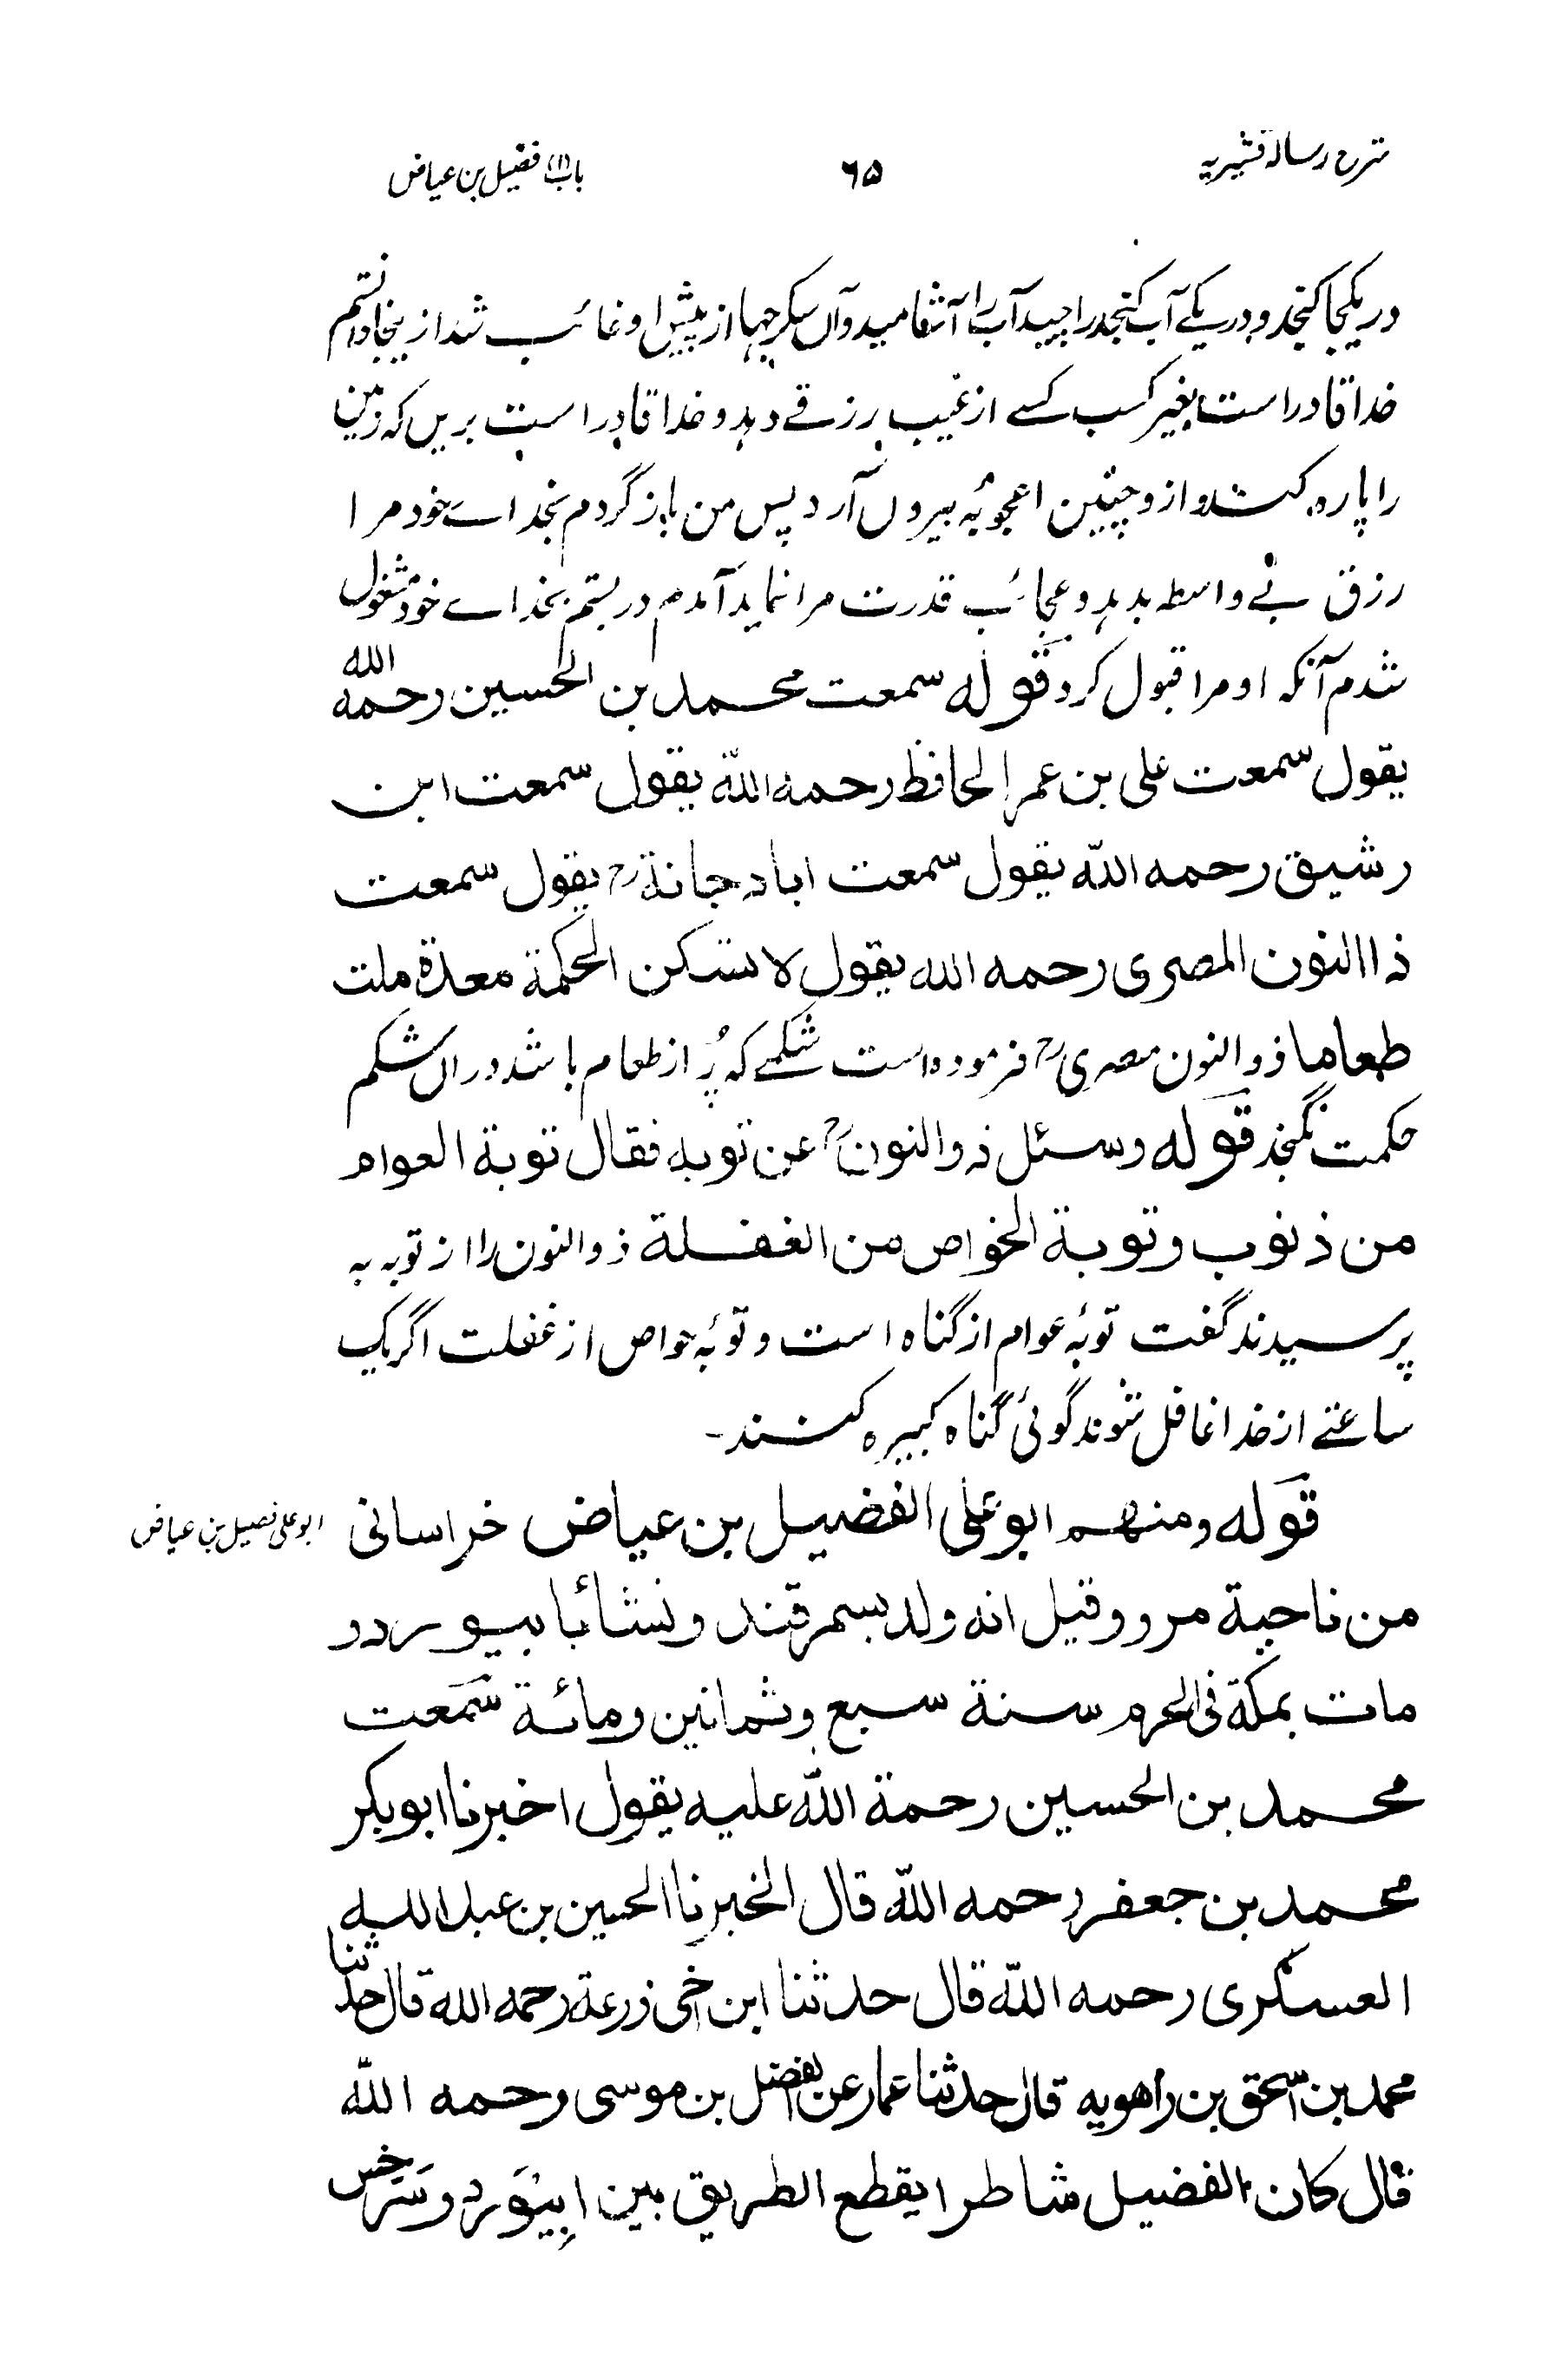 شرح رسالہ قشیریہ
۶۵
باب (۱) فضیل بن عیاض
در یکجا کنجد و در یکے آب کنجد را چید آب را آشامید و آں سکرچہا از پیش او غائب شد از ینجا دانستم
خدا قادر است بغیر کسب کسے از غیب رزقے دہد و خدا قادر است بریں کہ زمین
را پارہ کند و ازو چنین اعجوبۂ بیروں آرد پس من باز گردم بخداے خود مرا
رزق بے واسطہ بدہد و عجائب قدرت مرا نماید آمدم در بستم بخداے خود مشغول
شدم آنکہ او مرا قبول کرد قولہ سمعت محمد بن الحسین رحمه الله
یقول سمعت علی بن عمر الحافظ رحمه الله یقول سمعت ابن
رشیق رحمه الله یقول سمعت ابا دجانة رح یقول سمعت
ذا النون المصری رحمه الله یقول لا تسکن الحکمة معدة ملت
طعاما ذوالنون مصری رح فرمودہ است شکمے کہ پُر از طعام باشد دراں شکم
حکمت نگنجد قوله وسئل ذوالنون رح عن توبه فقال توبة العوام
من ذنوب وتوبة الخواص من الغفلة ذوالنون را از توبہ بہ
پرسیدند گفت توبۂ عوام از گناہ است و توبۂ خواص از غفلت اگر یک
ساعتے از خدا غافل شوند گوئی گناہ کبیرہ کنند۔
قوله ومنهم ابو علی الفضیل بن عیاض خراسانی
ابو علی فضیل بن عیاض
من ناحیة مرو وقیل انه ولد بسمرقند ونشأ بابیورد و
مات بمکة فی المحرم سنة سبع وثمانین ومائة سمعت
محمد بن الحسین رحمة الله علیه یقول اخبرنا ابوبکر
محمد بن جعفر رحمه الله قال اخبرنا الحسین بن عبد الله
العسکری رحمه الله قال حدثنا ابن اخی زرعة رحمه الله قال حدثنا
محمد بن اسحق بن راهویه قال حدثنا عمار عن الفضل بن موسی رحمه الله
قال کان الفضیل شاطرا یقطع الطریق بین ابیورد وسرخس